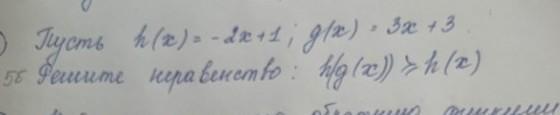 ) Пусть h(x) = -2x+1; g(x) = 3x+3.
5б Решите неравенство: h(g(x)) ≥ h(x)